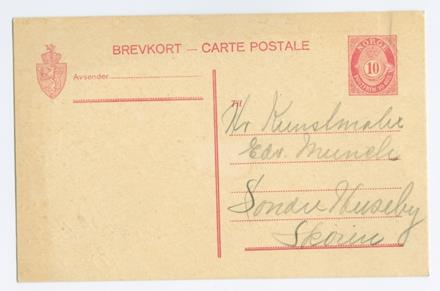 BREVKORT — CARTE POSTALE
NORGE
10
Avsender
Til
Hr Kunstmaler
Edv. Munch
Søndre Huseby
Skøien